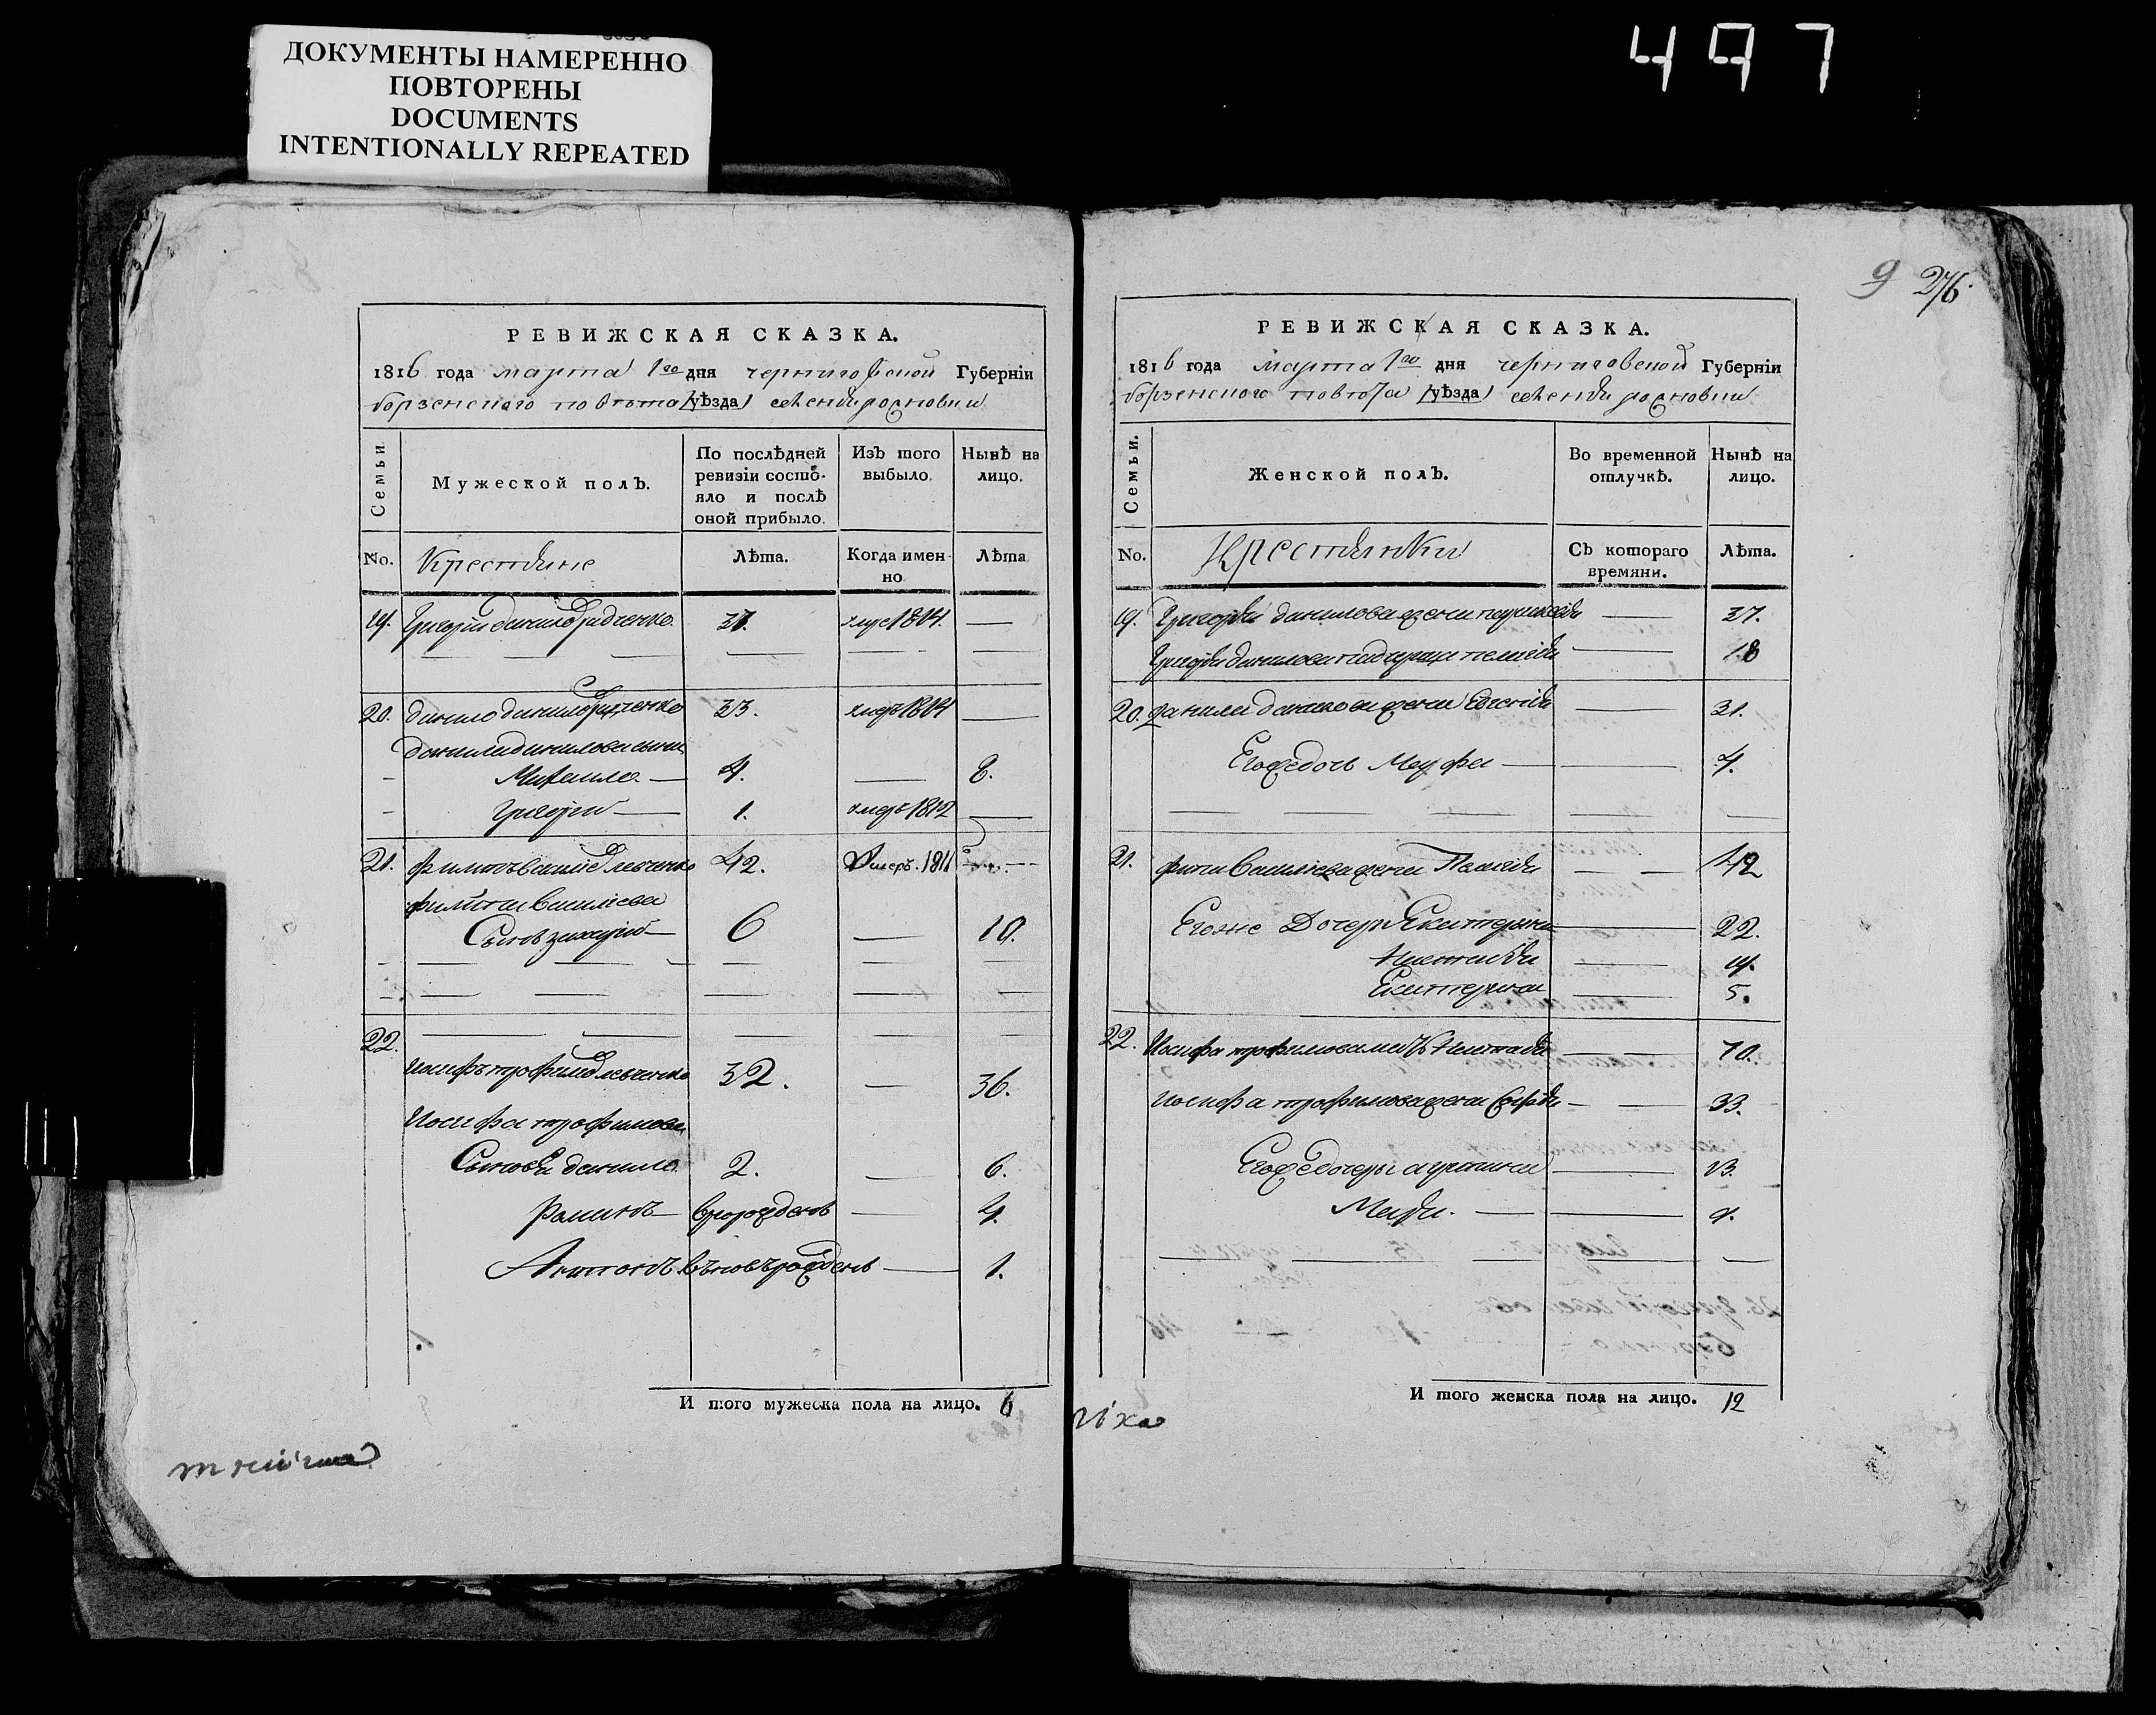 ДОКУМЕНТЫ НАМЕРЕННО
ПОВТОРЕНЫ
DOCUMENTS
INTENTIONALLY REPEATED
497
РЕВИЖСКАЯ СКАЗКА.
1816 года марта 1го дня черниговской Губерніи
борзенского повѣта /уѣзда/
Семьи
Мужеской полъ.
По послѣдней ревизіи состояло и послѣ оной прибыло.
Изъ того выбыло.
Нынѣ на лицо.
No.
Крестьяне
Лѣта.
Когда именно
Лѣта
19. Григорій данилов 31. умре 1814. —
20. данило данилов 33. умеръ 1814 —
данила данилова сыни
Михаило — 4. — 8.
Григорій — 1. умеръ 1812 —
21. филипъ василіев левченко 42. Умеръ. 1811
филипа василіева
Сынъ захарій — 6 — 10.
22.
Иосифъ трофимов левченко 32. — 36.
Иосифа трофимова
Сыновя данило 2. — 6.
романъ — вноворожденъ — 4.
Антонъ вновърожденъ — 1.
И того мужеска пола на лицо. 6
9 276.
РЕВИЖСКАЯ СКАЗКА.
1816 года марта 1го дня черниговской Губерніи
борзенского повѣта /уѣзда/
Семьи.
Женской полъ.
Во временной отлучкѣ.
Нынѣ на лицо.
No.
Крестьянки
Съ котораго времяни.
Лѣта.
19. Григорія данилова жена — 37.
Григорія данилова падчерица — 18
20. данила данилова жена Евгенія — 31.
Егожедочь Марфа — 7.
21. филипа Василіева жена Пелагія — 42
Егоже Дочери Екатерина — 22.
Настасія — 14.
Екатерина — 5.
22. Иосифа трофимова мать Настасія — 70.
Иосифа трофимова жена — 33.
Егожедочери агрипина — 13.
Марія. —
И того женска пола на лицо. 12